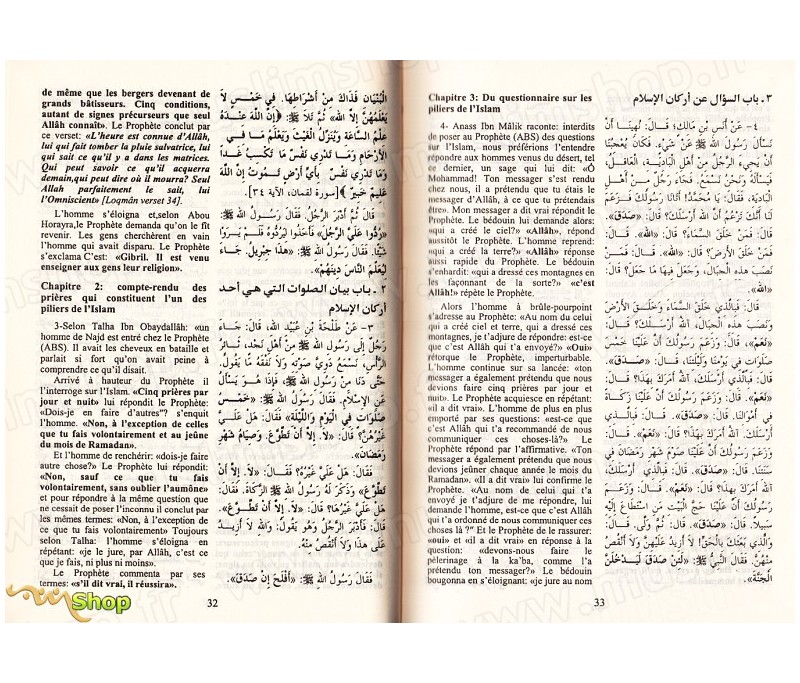 de même que les bergers devenant de
grands bâtisseurs. Cinq conditions,
autant de signes précurseurs que seul
Allâh connaît». Le Prophète conclut par
ce verset: «L'heure est connue d'Allâh,
lui qui fait tomber la pluie salvatrice, lui
qui sait ce qu'il y a dans les matrices.
Qui peut savoir ce qu'il acquerra
demain,qui peut dire où il mourra? Seul
Allah parfaitement le sait, lui
l'Omniscient» [Loqmân verset 34].
L'homme s'éloigna et,selon Abou
Horayra,le Prophète demanda qu'on le fit
revenir. Les gens cherchèrent en vain
l'homme qui avait disparu. Le Prophète
s'exclama C'est: "Gibril. Il est venu
enseigner aux gens leur religion».
Chapitre 2: compte-rendu des
prières qui constituent l'un des
piliers de l'Islam
3-Selon Talha Ibn Obaydallâh: «un
homme de Najd est entré chez le Prophète
(ABS). Il avait les cheveux en bataille et
parlait si fort qu'on avait peine à
comprendre ce qu'il disait.
Arrivé à hauteur du Prophète il
l'interroge sur l'Islam. «Cinq prières par
jour et nuit» lui répondit le Prophète:
«Dois-je en faire d'autres"? s'enquit
l'homme. «Non, à l'exception de celles
que tu fais volontairement et au jeûne
du mois de Ramadan».
Et l'homme de renchérir: «dois-je faire
autre chose?» Le Prophète lui répondit:
«Non, sauf ce que tu fais
volontairement, sans oublier l'aumône»
et pour répondre à la même question que
ne cessait de poser l'inconnu il conclut par
les mêmes termes: «Non, à l'exception de
ce que tu fais volontairement» Toujours
selon Talha: l'homme s'éloigna en
répétant: «je le jure, par Allâh, c'est ce
que je fais, ni plus ni moins».
Le Prophète commenta par ses
termes: «s'il dit vrai, il réussira».
الْبُنْيَانِ فَذَاكَ مِنْ أَشْرَاطِهَا. فِي خَمْسٍ لاَ
يَعْلَمُهُنَّ إِلاَّ اللَّهُ» ثُمَّ تَلاَ ﷺ: ﴿إِنَّ اللَّهَ عِنْدَهُ
عِلْمُ السَّاعَةِ وَيُنَزِّلُ الْغَيْثَ وَيَعْلَمُ مَا فِي
الأَرْحَامِ وَمَا تَدْرِي نَفْسٌ مَاذَا تَكْسِبُ غَداً
وَمَا تَدْرِي نَفْسٌ بِأَيِّ أَرْضٍ تَمُوتُ إِنَّ اللَّهَ
عَلِيمٌ خَبِيرٌ﴾ [سورة لقمان، الآية ٣٤].
قَالَ ثُمَّ أَدْبَرَ الرَّجُلُ. فَقَالَ رَسُولُ اللَّهِ ﷺ:
«رُدُّوا عَلَيَّ الرَّجُلَ» فَأَخَذُوا لِيَرُدُّوهُ فَلَمْ يَرَوْا
شَيْئًا. فَقَالَ رَسُولُ اللَّهِ ﷺ: «هَذَا جِبْرِيلُ. جَاءَ
لِيُعَلِّمَ النَّاسَ دِينَهُمْ».
٢ ـ باب بيان الصلوات التي هي أحد
أركان الإسلام
٣ـ عَنْ طَلْحَةَ بْنِ عُبَيْدِ اللَّهِ، قَالَ: جَاءَ
رَجُلٌ إِلَى رَسُولِ اللَّهِ ﷺ مِنْ أَهْلِ نَجْدٍ، ثَائِرُ
الرَّأْسِ، نَسْمَعُ دَوِيَّ صَوْتِهِ وَلاَ نَفْقَهُ مَا يَقُولُ.
حَتَّى دَنَا مِنْ رَسُولِ اللَّهِ ﷺ، فَإِذَا هُوَ يَسْأَلُ
عَنِ الإِسْلاَمِ. فَقَالَ رَسُولُ اللَّهِ ﷺ: «خَمْسُ
صَلَوَاتٍ فِي الْيَوْمِ وَاللَّيْلَةِ» فَقَالَ: هَلْ عَلَيَّ
غَيْرُهُنَّ؟ قَالَ: «لاَ. إِلاَّ أَنْ تَطَّوَّعَ. وَصِيَامُ شَهْرِ
رَمَضَانَ».
فَقَالَ: هَلْ عَلَيَّ غَيْرُهُ؟ فَقَالَ: «لاَ. إِلاَّ أَنْ
تَطَّوَّعَ» وَذَكَرَ لَهُ رَسُولُ اللَّهِ ﷺ الزَّكَاةَ. فَقَالَ:
هَلْ عَلَيَّ غَيْرُهَا؟ قَالَ: «لاَ. إِلاَّ أَنْ تَطَّوَّعَ»
قَالَ: فَأَدْبَرَ الرَّجُلُ وَهُوَ يَقُولُ: وَاللَّهِ لاَ أَزِيدُ
عَلَى هَذَا وَلاَ أَنْقُصُ مِنْهُ.
فَقَالَ رَسُولُ اللَّهِ ﷺ: «أَفْلَحَ إِنْ صَدَقَ».
32
Chapitre 3: Du questionnaire sur les
piliers de l'Islam
4- Anass Ibn Mâlik raconte: interdits
de poser au Prophète (ABS) des questions
sur l'Islam, nous préférions l'entendre
répondre aux hommes venus du désert, tel
ce dernier, un sage qui lui dit: «Ô
Mohammad! Ton messager s'est rendu
chez nous, il a prétendu que tu étais le
messager d'Allâh, à ce que tu prétendais
être». Mon messager a dit vrai répondit le
Prophète. Le bédouin lui demanda alors:
«qui a créé le ciel?» «Allâh», répond
aussitôt le Prophète. L'homme reprend:
«qui a créé la terre?» «Allâh» réponse
aussi rapide du Prophète. Le bédouin
s'enhardit: «qui a dressé ces montagnes en
les façonnant de la sorte?» «c'est
Allâh!» répète le Prophète.
Alors l'homme à brûle-pourpoint
s'adresse au Prophète: «Au nom de celui
qui a créé ciel et terre, qui a dressé ces
montagnes, je t'adjure de répondre: est-ce
que c'est Allâh qui t'a envoyé?» «Oui»
rétorque le Prophète, imperturbable.
L'homme continue sur sa lancée: «ton
messager a également prétendu que nous
devions cinq prières par jour et
nuit». Le Prophète acquiesce en répétant:
«il a dit vrai». L'homme de plus en plus
emporté par ses questions: «est-ce que
c'est Allâh qui t'a recommandé de nous
communiquer ces choses-là?» Le
Prophète répond par l'affirmative. «Ton
messager a également prétendu que nous
devions jeûner chaque année le mois du
Ramadan». «Il a dit vrai» lui confirme le
Prophète. «Au nom de celui qui t'a
envoyé je t'adjure de me répondre, lui
demande l'homme, est-ce que c'est Allah
qui t'a ordonné de nous communiquer ces
choses là ?" Et le Prophète de le rassurer:
«oui» et «il a dit vrai» en réponse à la
question: «devons-nous faire le
pèlerinage à la ka'ba, comme l'a
prétendu ton messager?» Le bédouin
bougonna en s'éloignant: «je jure au nom
٣ ـ باب السؤال عن أركان الإسلام
٤ـ عَنْ أَنَسِ بْنِ مَالِكٍ؛ قَالَ: نُهِينَا أَنْ
نَسْأَلَ رَسُولَ اللَّهِ ﷺ عَنْ شَيْءٍ. فَكَانَ يُعْجِبُنَا
أَنْ يَجِيءَ الرَّجُلُ مِنْ أَهْلِ الْبَادِيَةِ، الْعَاقِلُ،
فَيَسْأَلَهُ وَنَحْنُ نَسْمَعُ. فَجَاءَ رَجُلٌ مِنْ أَهْلِ
الْبَادِيَةِ، فَقَالَ: يَا مُحَمَّدُ! أَتَانَا رَسُولُكَ فَزَعَمَ
لَنَا أَنَّكَ تَزْعُمُ أَنَّ اللَّهَ أَرْسَلَكَ؟ قَالَ: «صَدَقَ».
قَالَ: فَمَنْ خَلَقَ السَّمَاءَ؟ قَالَ: «اللَّهُ». قَالَ:
فَمَنْ خَلَقَ الأَرْضَ؟ قَالَ: «اللَّهُ» قَالَ: فَمَنْ
نَصَبَ هَذِهِ الْجِبَالَ، وَجَعَلَ فِيهَا مَا جَعَلَ؟ قَالَ:
«اللَّهُ».
قَالَ: فَبِالَّذِي خَلَقَ السَّمَاءَ وَخَلَقَ الأَرْضَ
وَنَصَبَ هَذِهِ الْجِبَالَ، آللَّهُ أَرْسَلَكَ؟ قَالَ:
«نَعَمْ» قَالَ: وَزَعَمَ رَسُولُكَ أَنَّ عَلَيْنَا خَمْسَ
صَلَوَاتٍ فِي يَوْمِنَا وَلَيْلَتِنَا. قَالَ: «صَدَقَ».
قَالَ: فَبِالَّذِي أَرْسَلَكَ، آللَّهُ أَمَرَكَ بِهَذَا؟ قَالَ:
«نَعَمْ». قَالَ: وَزَعَمَ رَسُولُكَ أَنَّ عَلَيْنَا زَكَاةً
فِي أَمْوَالِنَا. قَالَ: «صَدَقَ». قَالَ: فَبِالَّذِي
أَرْسَلَكَ آللَّهُ أَمَرَكَ بِهَذَا؟ قَالَ: «نَعَمْ». قَالَ:
وَزَعَمَ رَسُولُكَ أَنَّ عَلَيْنَا صَوْمَ شَهْرِ رَمَضَانَ فِي
سَنَتِنَا. قَالَ: «صَدَقَ». قَالَ: فَبِالَّذِي أَرْسَلَكَ،
آللَّهُ أَمَرَكَ بِهَذَا؟ قَالَ: «نَعَمْ» قَالَ: وَزَعَمَ
رَسُولُكَ أَنَّ عَلَيْنَا حَجَّ الْبَيْتِ مَنِ اسْتَطَاعَ إِلَيْهِ
سَبِيلاً. قَالَ: «صَدَقَ». قَالَ: ثُمَّ وَلَّى. قَالَ:
وَالَّذِي بَعَثَكَ بِالْحَقِّ! لاَ أَزِيدُ عَلَيْهِنَّ وَلاَ أَنْقُصُ
مِنْهُنَّ. فَقَالَ النَّبِيُّ ﷺ: «لَئِنْ صَدَقَ لَيَدْخُلَنَّ
الْجَنَّةَ».
33
Shop